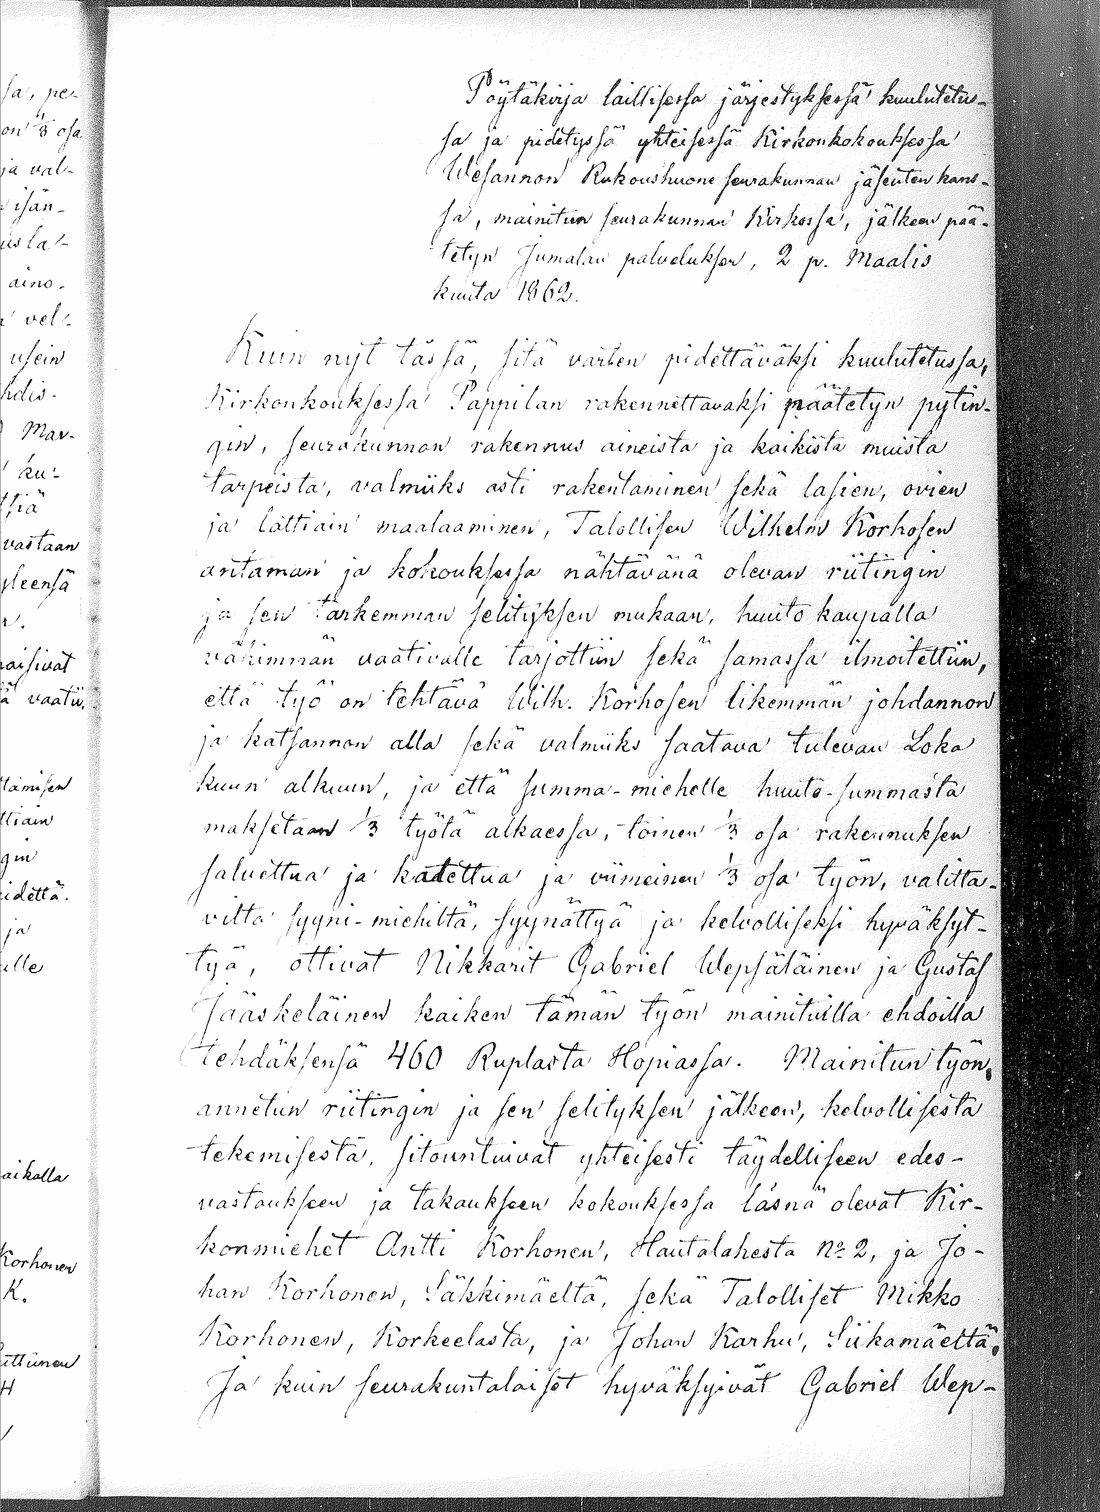 sa, pe-
on 1/3 osa
ja val-
isän-
usla-
aino-
vel-
usein
hdis-
Mar-
ku-
ttiä
vastaan
yleensä
n.
vaisivat
ä vaatii,
ttämisen
ttiain
gin
idettä.
ja
ulle
aikalla
Korhonen
K.
uttunen
H
Pöytäkirja laillisessa järjestyksessä kuulutetus-
sa ja pidetyssä yhteisessä Kirkonkokouksessa
Wesannon Rukoushuone seurakunnan jäsenten kans-
sa, mainitun seurakunnan Kirkossa, jälkeen pää-
tetyn Jumalan palveluksen, 2 p. Maalis
kuuta 1862.
Kuin nyt tässä, sitä varten pidettäväksi kuulutetussa,
Kirkonkouksessa Pappilan rakennettavaksi päätetyn pytin-
gin, seurakunnan rakennus aineista ja kaikista muista
tarpeista, valmiiks asti rakentaminen sekä lasien, ovien
ja lattiain maalaaminen, Talollisen Wilhelm Korhosen
antaman ja kokouksessa nähtävänä olevan riitingin
ja sen tarkemman selityksen mukaan, huuto kaupalla
vähimmän vaativalle tarjottiin sekä samassa ilmoitettiin,
että työ on tehtävä Wilh. Korhosen likemmän johdannon
ja katsannon alla sekä valmiiks saatava tulevan Loka
kuun alkuun, ja että summa-miehelle huuto-summasta
maksetaan 1/3 työtä alkaessa, toinen 1/3 osa rakennuksen
salvettua ja katettua ja viimeinen 1/3 osa työn, valitta-
vilta syyni-miehiltä, syynättyä ja kelvolliseksi hyväksyt-
tyä, ottivat Nikkarit Gabriel Wepsäläinen ja Gustaf
Jääskeläinen kaiken tämän työn mainituilla ehdoilla
tehdäksensä 460 Ruplasta Hopiassa. Mainitun työn,
annetun riitingin ja sen selityksen jälkeen, kelvollisesta
tekemisestä, sitountuivat yhteisesti täydelliseen edes-
vastaukseen ja takaukseen kokouksessa läsnä olevat Kir-
konmiehet Antti Korhonen, Hautalahesta No 2, ja Jo-
han Korhonen, Säkkimäeltä, sekä Talolliset Mikko
Korhonen, Korkeelasta, ja Johan Karhu, Siikamäeltä.
Ja kuin seurakuntalaiset hyväksyivät Gabriel Wep-